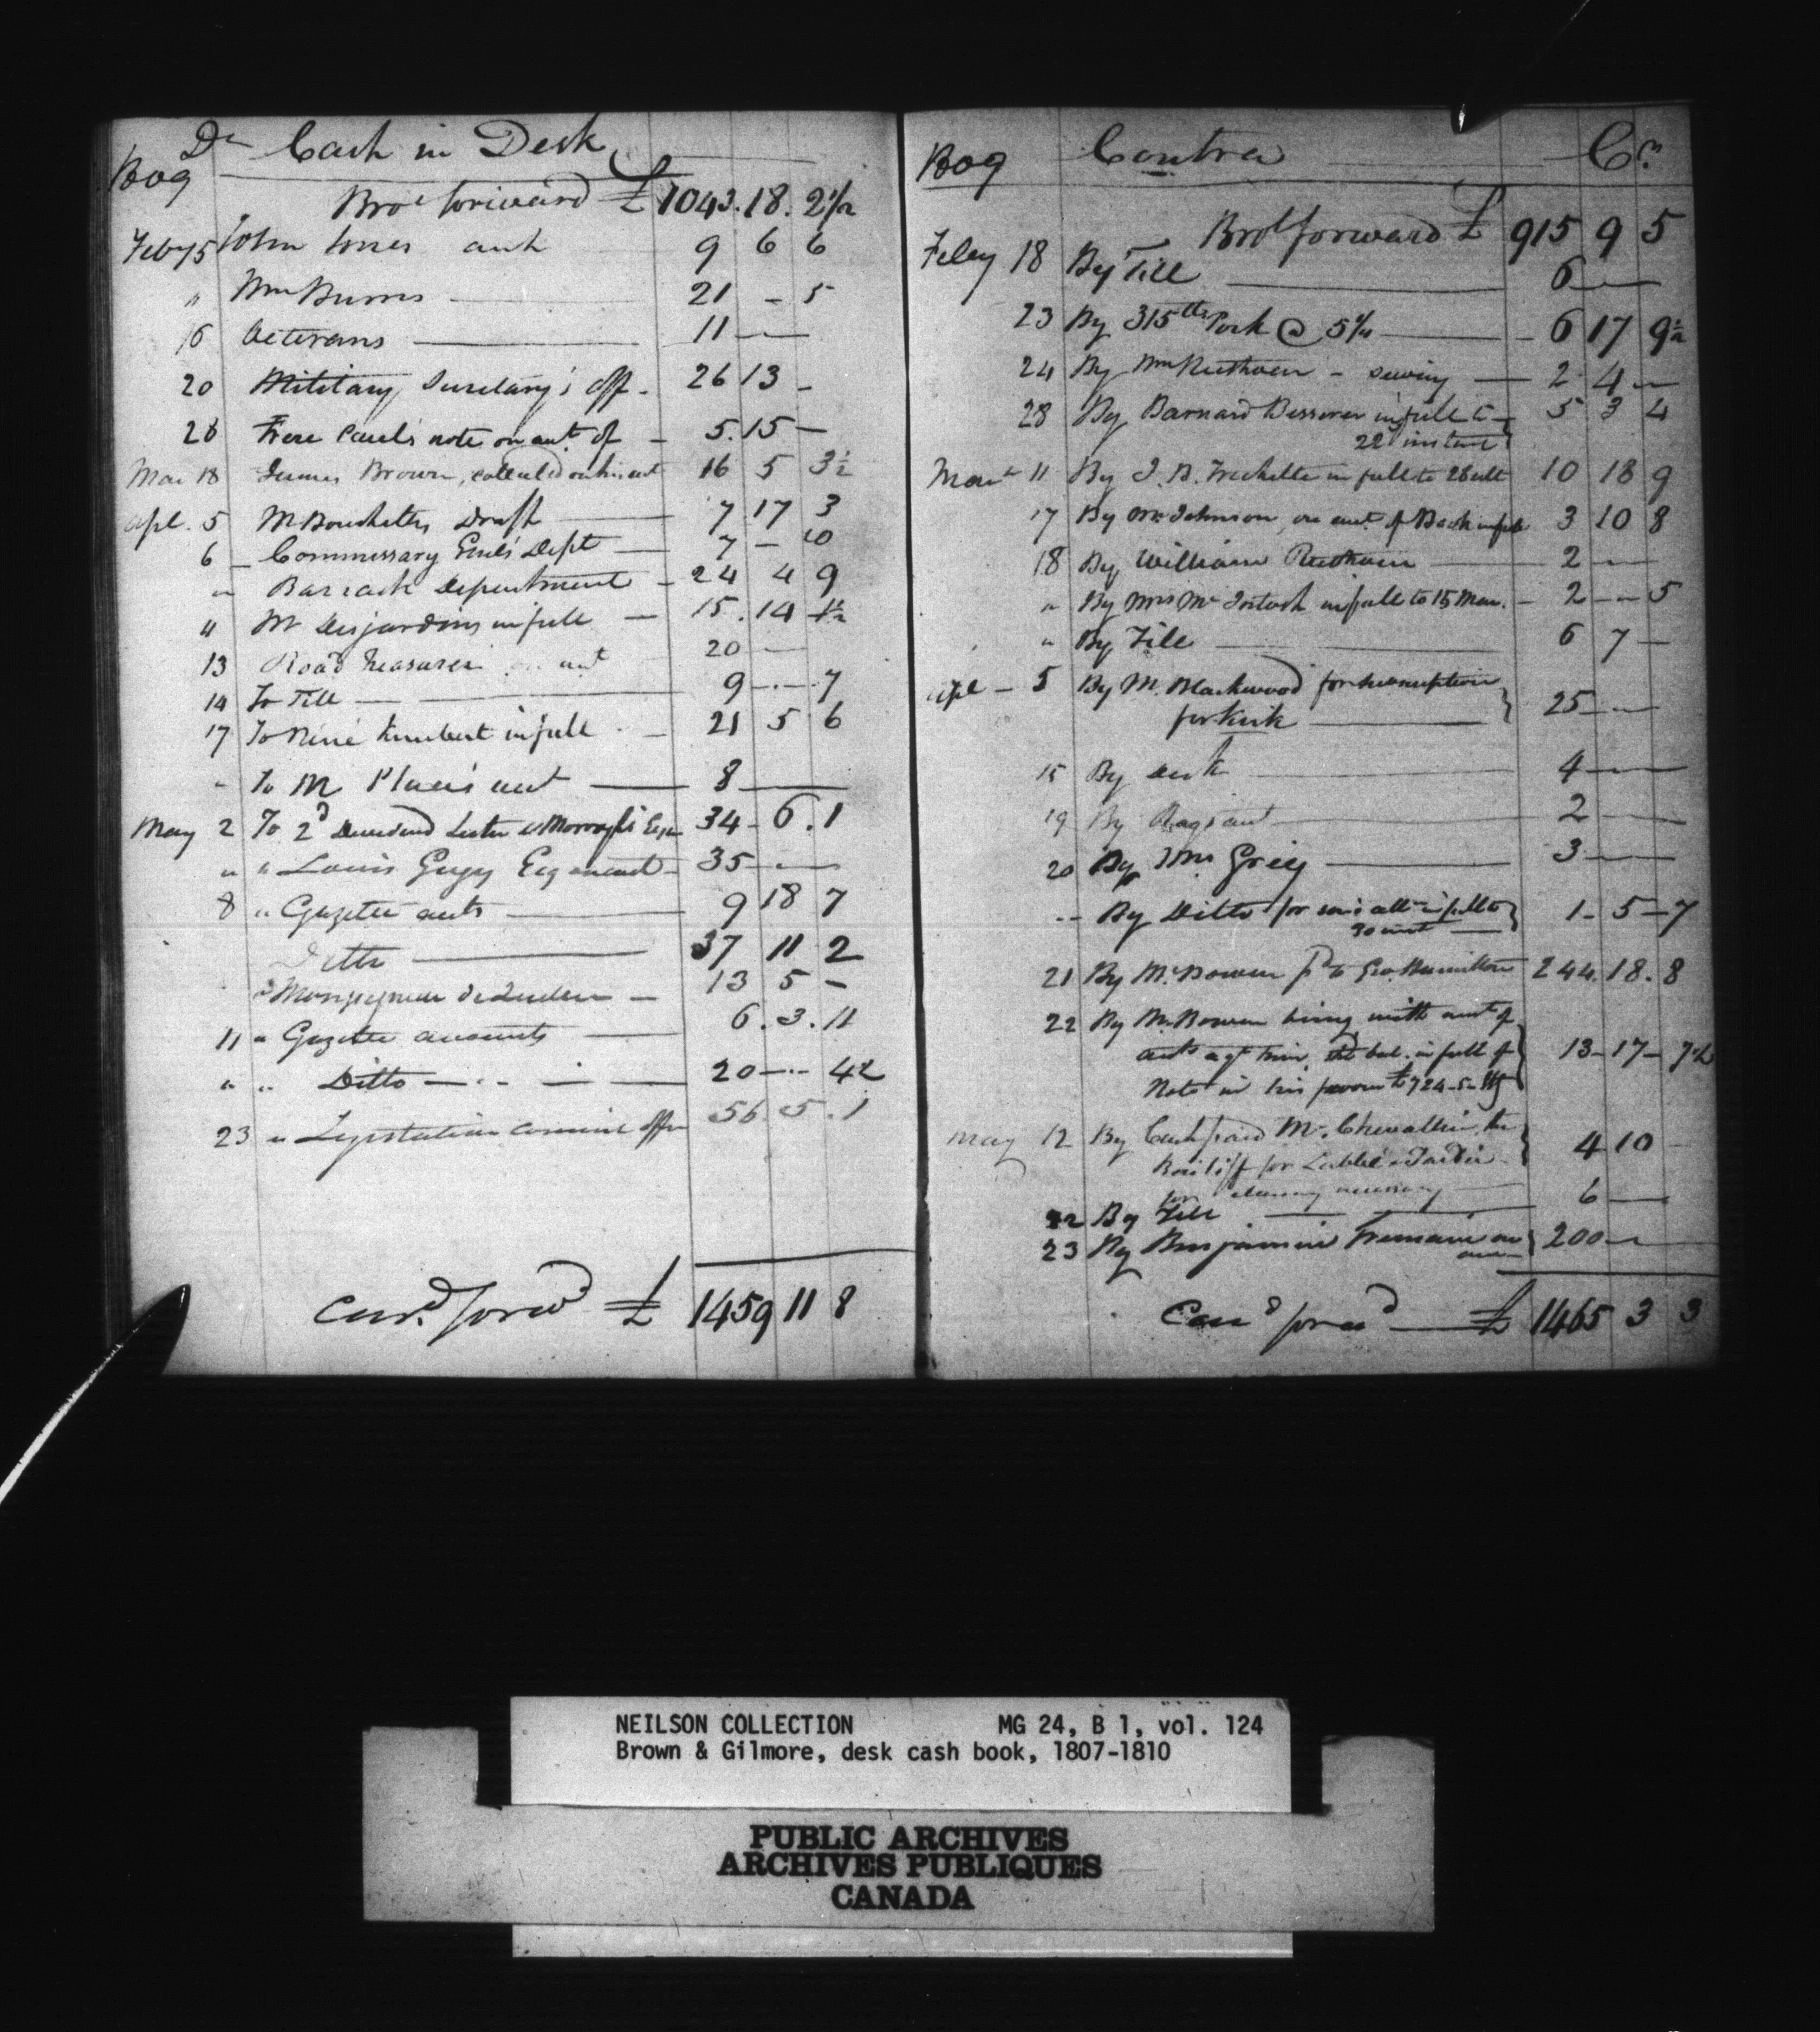 Dr Cash in Desk
1809
Bro.t forward £ 1043. 18. 2 1/2
Feby 5 John Jones acct 9 6 6
" Wm Burns 21 - 5
16 Veterans 11 - -
20 Military Secretary's off - 26 13 -
28 Frere note on acct of - 5. 15 -
Mar 18 James Brown, collected on his acct 16 5 3 1/2
Apl. 5 M Bouchette's Draft 7 17 3
6 Commissary Genl's Dept 7 - 10
" Barrack Department - 24 4 9
" Mr Desjardins in full - 15. 14
13 Road Treasurer on acct 20 -
14 To Till 9 - 7
17 To in full - 21 5 6
" To M acct 8
May 2 To 2d Dividend Lester & Morrogh's 34 - 6. 1
" " Louis Gugy Esq 35 - -
8 " Gazette accts 9 18 7
Ditto 37 11 2
13 5 -
11 " Gazette accounts 6. 3. 11
" " Ditto 20 - 4 1/2
23 " 56 5. 1
Card. forwd £ 1459 11 8
1809 Contra Cr.
Brot forward £ 915 9 5
Feby 18 By Till 6 -
23 By 315 lbs Pork @ 5 1/4 - 6 17 9 1/2
24 By Wm Ruthven - sewing 2 4 -
28 By Barnard in full to 5 3 4
22 instant
March 11 By J. B. Frechette in full to 28 ult 10 18 9
17 By Mr Johnson, on acct. of 3 10 8
18 By William Ruthven 2 -
" By Mrs Mc Intosh in full to 15 Mar. - 2 - 5
" By Till 6 7 -
Apl - 5 By M. Blackwood for subscription
for Kirk 25 - -
15 By 4 -
19 By Rags acct 2 -
20 By Wm Grieg 3 -
" By Ditto for in full to 1 - 5 - 7
30
21 By Mr. Bowen pd to Geo. Hamilton 244. 18. 8
22 By Mr Bowen being with amt of
accts agt him, the bal. in full of 13 - 17 -
Note in his favour £724 - 5 -
May 12 By Cash paid Mr. Chevallier, the
Bailiff for 4 10 -
for
22 By Till 6 -
23 By Benjamin Tremain on 200 -
Card forwd £ 1465 3 3
NEILSON COLLECTION MG 24, B 1, vol. 124
Brown & Gilmore, desk cash book, 1807-1810
PUBLIC ARCHIVES
ARCHIVES PUBLIQUES
CANADA